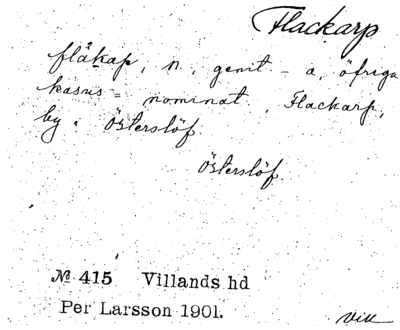 Flackarp
flåkap, n, genit - a, öfriga
kasus = nominat, Flackarp,
by i Österslöf.
Österslöf
№ 415 Villands hd
Per Larsson 1901.
Vill